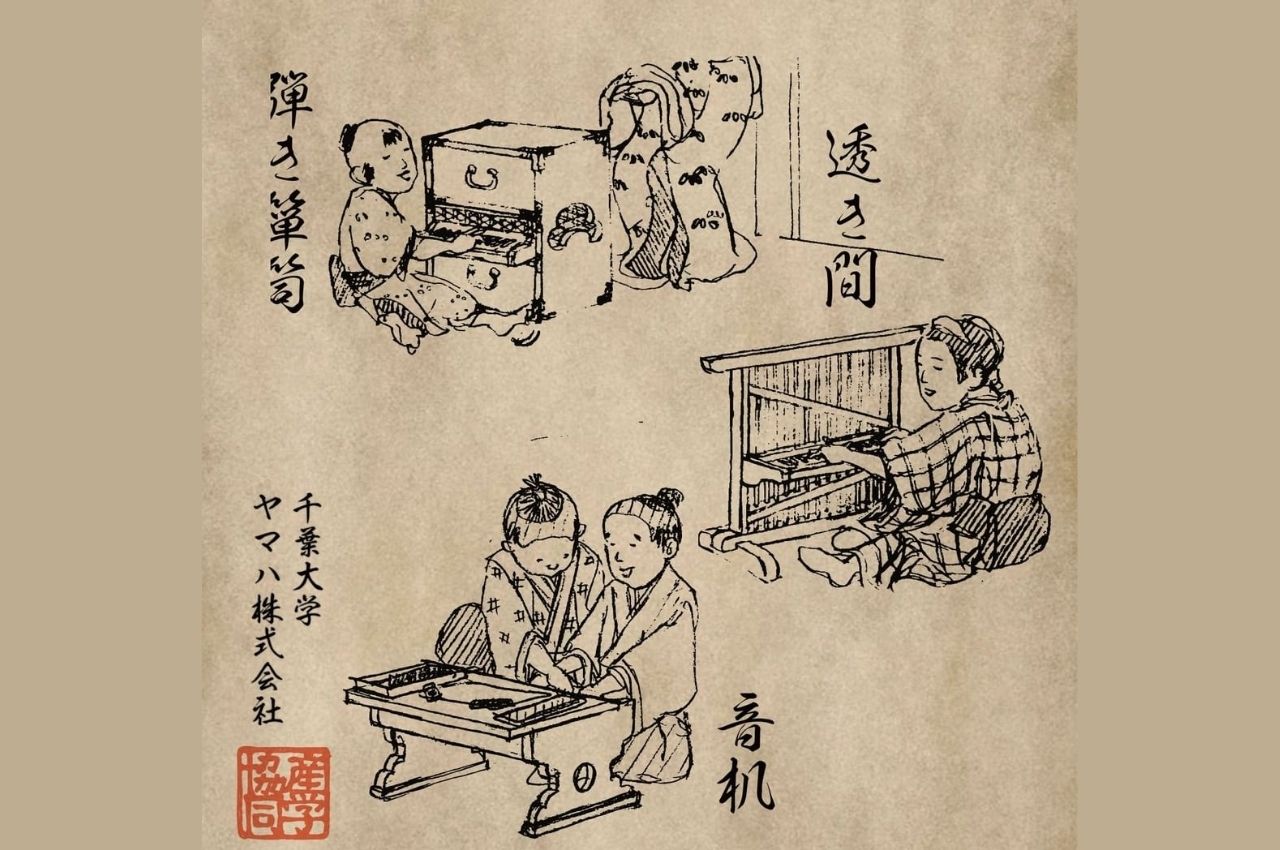 透き間
弾き箪笥
音机
千葉大学
ヤマハ株式会社
産学
協同